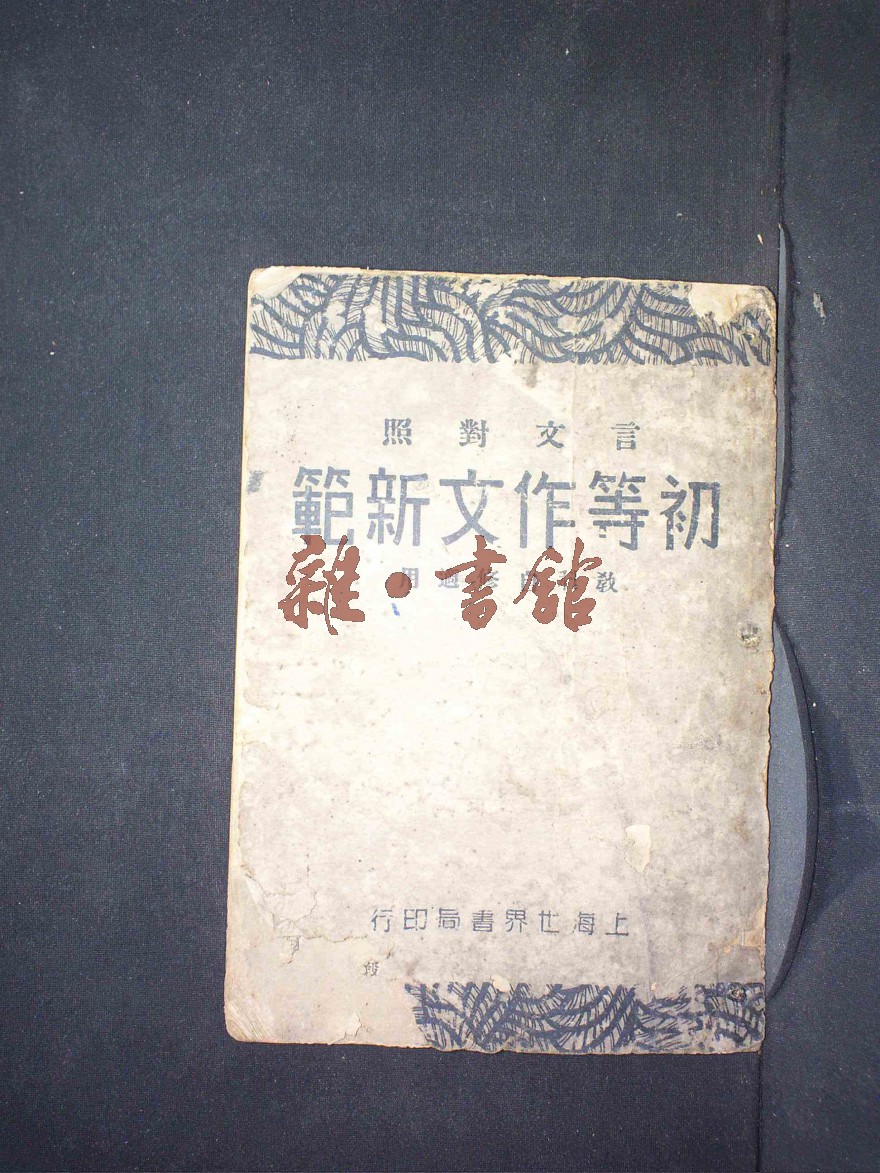 言文對照
初等作文新範
教
用
雜·書館
上海世界書局印行